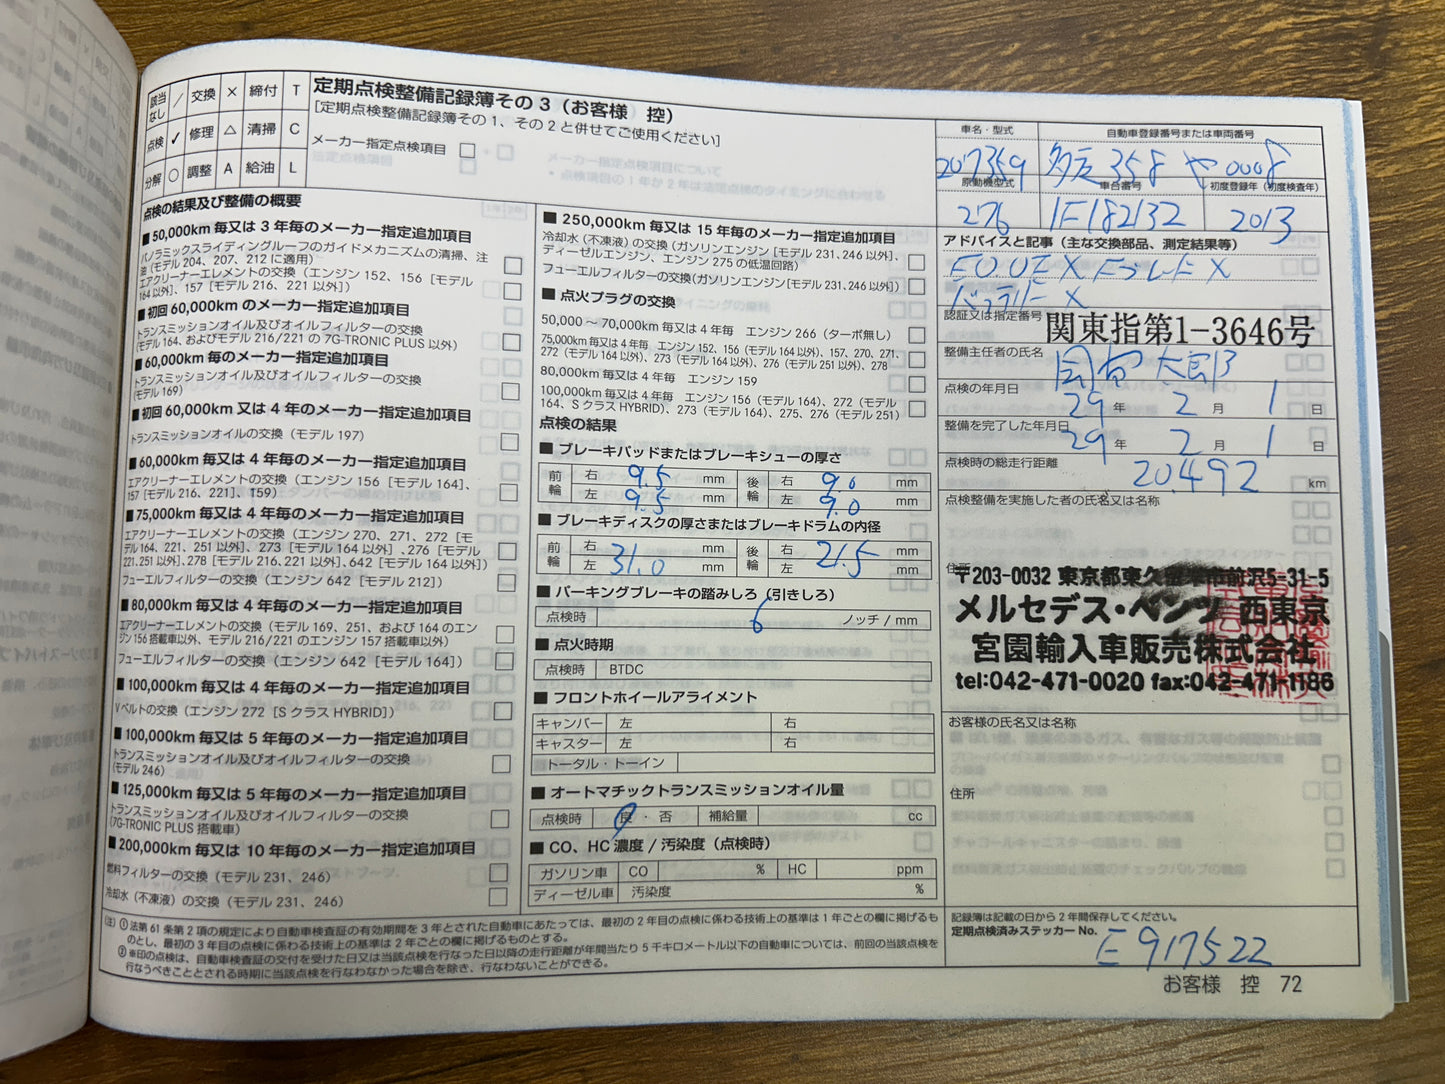 該当なし ／ 交換 × 締付 T
点検 ✓ 修理 △ 清掃 C
分解 ○ 調整 A 給油 L
定期点検整備記録簿その3（お客様 控）
［定期点検整備記録簿その1、その2と併せてご使用ください］
メーカー指定点検項目 □
点検の結果及び整備の概要
■ 50,000km 毎又は 3 年毎のメーカー指定追加項目
パノラミックスライディングルーフのガイドメカニズムの清掃、注
油（モデル 204、207、212 に適用）
エアクリーナーエレメントの交換（エンジン 152、156［モデル
164 以外］、157［モデル 216、221 以外］）
■ 初回 60,000km のメーカー指定追加項目
トランスミッションオイル及びオイルフィルターの交換
（モデル 164、およびモデル 216/221 の 7G-TRONIC PLUS 以外）
■ 60,000km 毎のメーカー指定追加項目
トランスミッションオイル及びオイルフィルターの交換
（モデル 169）
■ 初回 60,000km 又は 4 年毎のメーカー指定追加項目
トランスミッションオイルの交換（モデル 197）
■ 60,000km 毎又は 4 年毎のメーカー指定追加項目
エアクリーナーエレメントの交換（エンジン 156［モデル 164］、
157［モデル 216、221］、159）
■ 75,000km 毎又は 4 年毎のメーカー指定追加項目
エアクリーナーエレメントの交換（エンジン 270、271、272［モ
デル 164、221、251 以外］、273［モデル 164 以外］、276［モデル
221、251 以外］、278［モデル 216、221 以外］、642［モデル 164 以外］）
フューエルフィルターの交換（エンジン 642［モデル 212］）
■ 80,000km 毎又は 4 年毎のメーカー指定追加項目
エアクリーナーエレメントの交換（モデル 169、251、および 164 のエン
ジン 156 搭載車以外、モデル 216/221 のエンジン 157 搭載車以外）
フューエルフィルターの交換（エンジン 642［モデル 164］）
■ 100,000km 毎又は 4 年毎のメーカー指定追加項目
V ベルトの交換（エンジン 272［S クラス HYBRID］）
■ 100,000km 毎又は 5 年毎のメーカー指定追加項目
トランスミッションオイル及びオイルフィルターの交換
（モデル 246）
■ 125,000km 毎又は 5 年毎のメーカー指定追加項目
トランスミッションオイル及びオイルフィルターの交換
（7G-TRONIC PLUS 搭載車）
■ 200,000km 毎又は 10 年毎のメーカー指定追加項目
燃料フィルターの交換（モデル 231、246）
冷却水（不凍液）の交換（モデル 231、246）
■ 250,000km 毎又は 15 年毎のメーカー指定追加項目
冷却水（不凍液）の交換（ガソリンエンジン［モデル 231、246 以外］、
ディーゼルエンジン、エンジン 275 の低温回路）
フューエルフィルターの交換（ガソリンエンジン［モデル 231、246 以外］）
■ 点火プラグの交換
50,000 ～ 70,000km 毎又は 4 年毎 エンジン 266（ターボ無し）
75,000km 毎又は 4 年毎 エンジン 152、156（モデル 164 以外）、157、270、271、
272（モデル 164 以外）、273（モデル 164 以外）、276（モデル 251 以外）、278
80,000km 毎又は 4 年毎 エンジン 159
100,000km 毎又は 4 年毎 エンジン 156（モデル 164）、272（モデル
164、S クラス HYBRID）、273（モデル 164）、275、276（モデル 251）
点検の結果
■ ブレーキパッドまたはブレーキシューの厚さ
前輪 右 9.5 mm 後輪 右 9.0 mm
左 9.5 mm 左 9.0 mm
■ ブレーキディスクの厚さまたはブレーキドラムの内径
前輪 右 左 31.0 mm mm 後輪 右 左 21.5 mm mm
■ パーキングブレーキの踏みしろ（引きしろ）
点検時 6 ノッチ / mm
■ 点火時期
点検時 BTDC
■ フロントホイールアライメント
キャンバー 左 右
キャスター 左 右
トータル・トーイン
■ オートマチックトランスミッションオイル量
点検時 良 ・ 否 補給量 cc
■ CO、HC 濃度 / 汚染度（点検時）
ガソリン車 CO % HC ppm
ディーゼル車 汚染度 %
車名・型式 自動車登録番号または車両番号
207359 多摩 358 や 0008
原動機型式 車台番号 初度登録年（初度検査年）
276 1F182132 2013
アドバイスと記事（主な交換部品、測定結果等）
E/O、O/E × F/ブレーF ×
バッテリー ×
認証又は指定番号 関東指第1-3646号
整備主任者の氏名 太郎
点検の年月日
29 年 2 月 1 日
整備を完了した年月日
29 年 2 月 1 日
点検時の総走行距離 20,492 km
点検整備を実施した者の氏名又は名称
住所
〒203-0032 東京都東久留米市前沢5-31-5
メルセデス・ベンツ 西東京
宮園輸入車販売株式会社
tel:042-471-0020 fax:042-471-1186
お客様の氏名又は名称
住所
記録簿は記載の日から 2 年間保存してください。
定期点検済みステッカー No. E917522
（注）① 法第 61 条第 2 項の規定により自動車検査証の有効期間を 3 年とされた自動車にあたっては、最初の 2 年目の点検に係わる技術上の基準は 1 年ごとの欄に掲げるも
のとし、最初の 3 年目の点検に係わる技術上の基準は 2 年ごとの欄に掲げるものとする。
② ※印の点検は、自動車検査証の交付を受けた日又は当該点検を行なった日以降の走行距離が年間当たり 5 千キロメートル以下の自動車については、前回の当該点検を
行なうべきこととされる時期に当該点検を行なわなかった場合を除き、行なわないことができる。
お客様 控 72